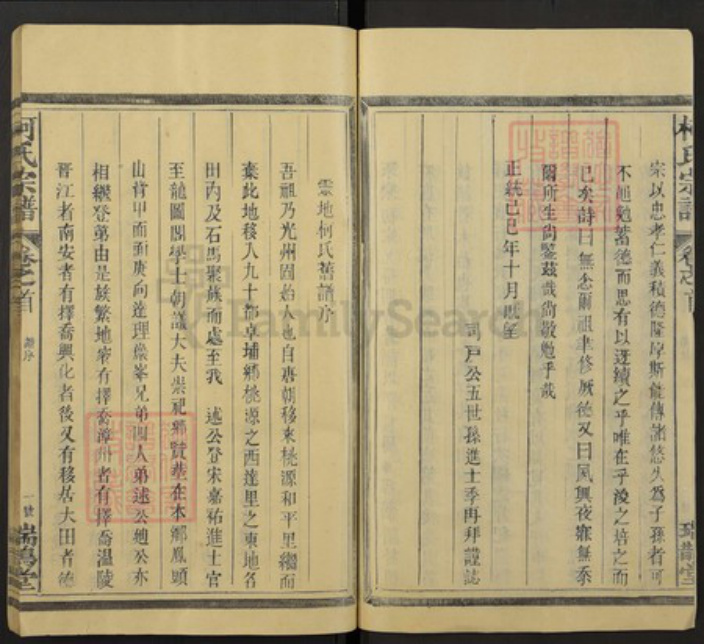 宗以忠孝仁義積德隆厚斯能傳諸悠久為子孫者可
不勉勉蓄德而思有以迓續之乎唯在乎浚之培之而
已矣詩曰無念爾祖聿修厥德又曰夙興夜寐無忝
爾所生尚鑒茲哉尚敬勉乎哉
正統己巳年十月既望
司戶公五世孫進士季再拜謹誌
靈地柯氏舊譜序
吾祖乃光州固始人也自唐朝移來桃源和平里繼而
棄此地移入九十都卓埔鄉桃源之西達里之東地名
田內及石馬聚族而處至我 述公登宋嘉祐進士官
至龍圖閣學士朝議大夫崇祀鄉賢墓在本鄉鳳頭
山背甲而面庚向達理巖峯兄弟四人弟述公總公亦
相繼登第由是族繁地窄有擇喬漳州者有擇喬溫陵
晉江者南安者有擇喬興化者後又有移居大田者德
柯氏宗譜
卷之首
譜序
一號
瑞鵲堂
柯氏宗譜
卷之首
瑞鵲堂
FamilySearch